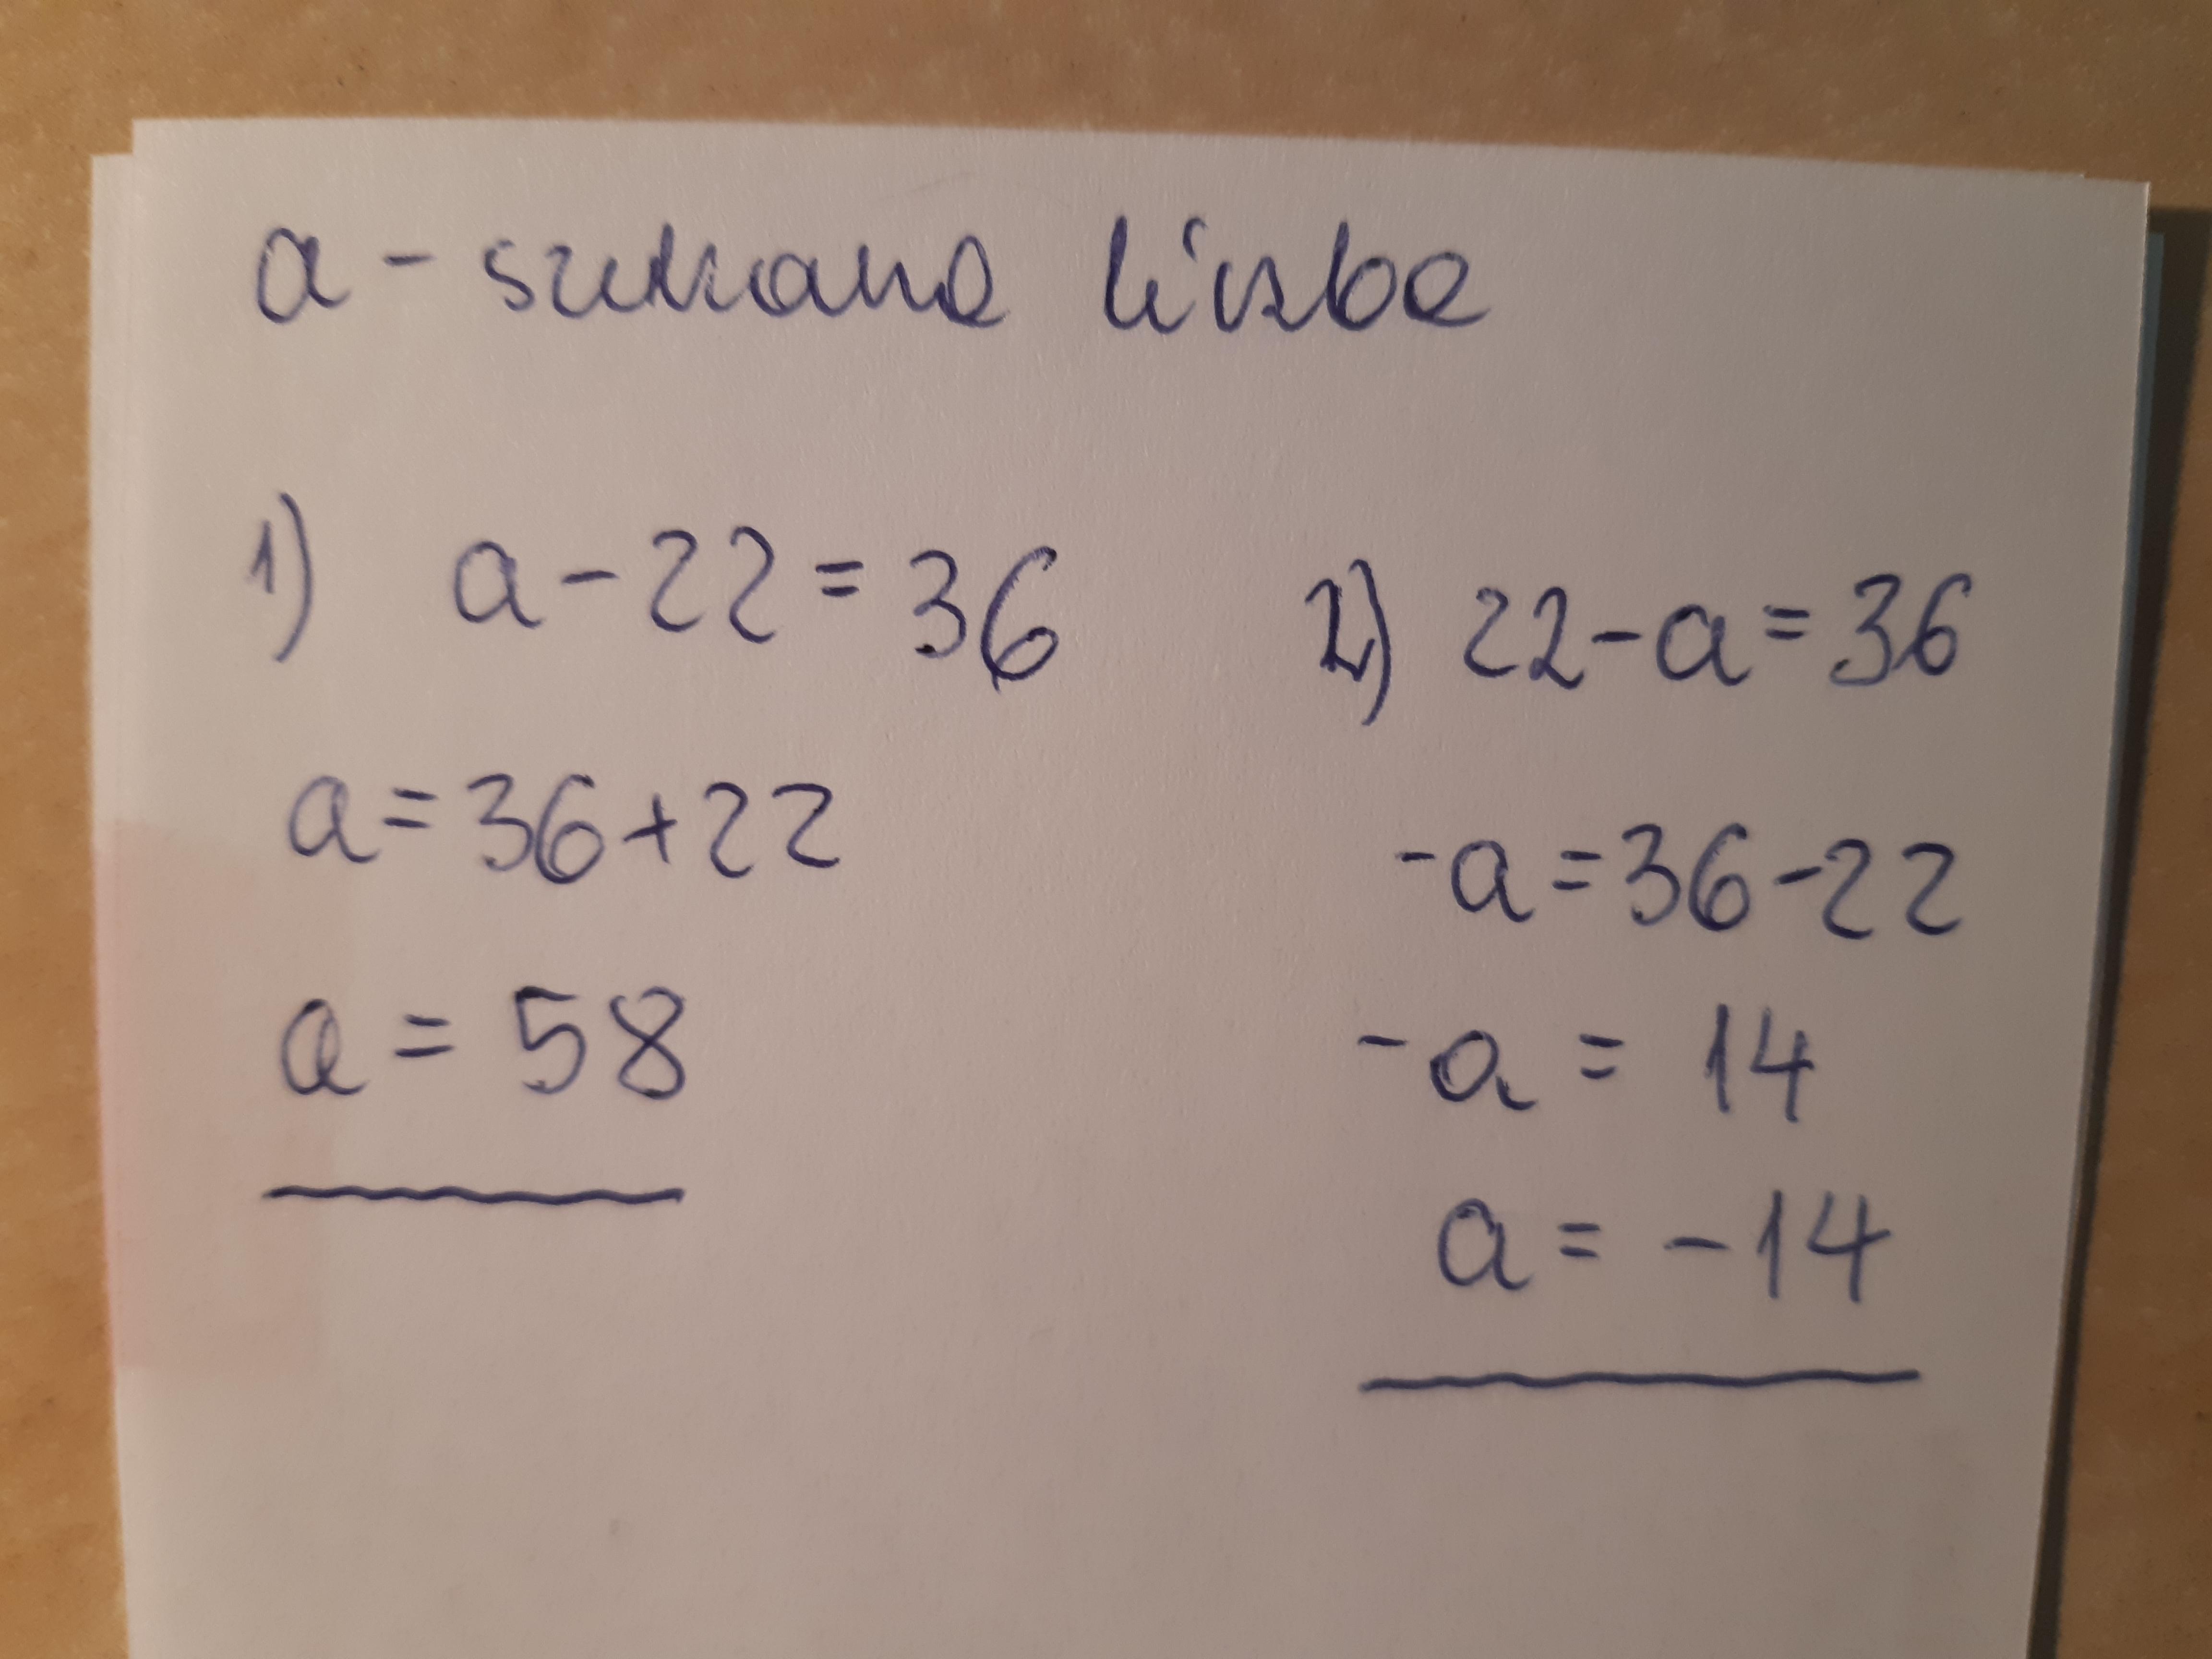 a - szukana liczba
1) a - 22 = 36
a = 36 + 22
a = 58
2) 22 - a = 36
- a = 36 - 22
- a = 14
a = - 14